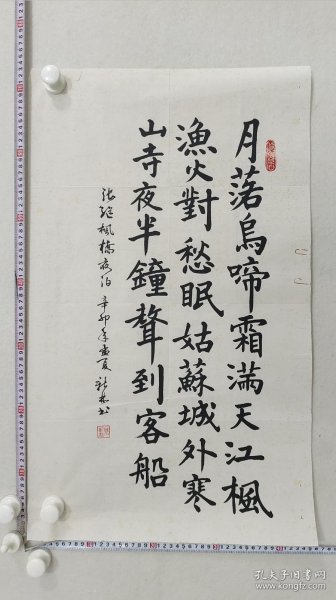 月落烏啼霜滿天江楓
漁火對愁眠姑蘇城外寒
山寺夜半鐘聲到客船
张继楓橋夜泊 辛卯年盛夏 书
孔夫子旧书网
www.kongfz.com